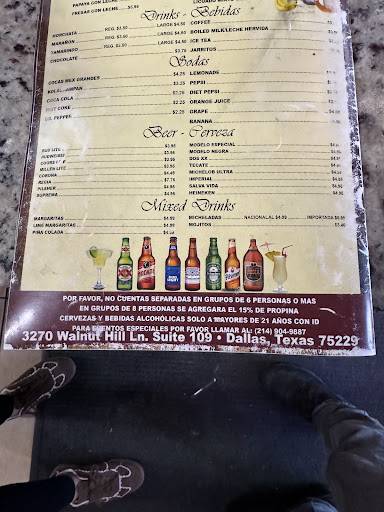 PAPAYA CON LECHE
FRESAS CON LECHE $4.50
Drinks - Bebidas
HORCHATA REG. $3.50 LARGE $4.50
MARAÑON REG. $3.50 LARGE $4.50
TAMARINDO REG. $3.50 LARGE $4.50
CHOCOLATE
COFFEE
BOILED MILK/LECHE HERVIDA
ICE TEA
JARRITOS
Sodas
COCAS MEX GRANDES $4.25
$3.25
COCA COLA $2.25
DIET COKE $2.25
DR. PEPPER $2.25
LEMONADE
PEPSI
DIET PEPSI
ORANGE JUICE
GRAPE
BANANA
Beer - Cerveza
BUD LITE $3.95
BUDWEISER $3.95
$3.95
MILLER LITE $3.95
CORONA $4.49
REGIA $7.74
PILSNER $4.95
SUPREMA $4.95
MODELO ESPECIAL
MODELO NEGRA
DOS XX
TECATE
MICHELOB ULTRA
IMPERIAL
SALVA VIDA
HEINEKEN $4.95
Mixed Drinks
MARGARITAS $4.99
LIME MARGARITAS $4.99
PINA COLADA $4.99
MICHELADAS NACIONAL $4.99 IMPORTADA $5.99
MOJITOS $3.40
POR FAVOR, NO CUENTAS SEPARADAS EN GRUPOS DE 6 PERSONAS O MAS
EN GRUPOS DE 8 PERSONAS SE AGREGARA EL 15% DE PROPINA
CERVEZAS Y BEBIDAS ALCOHÓLICAS SOLO A MAYORES DE 21 AÑOS CON ID
PARA EVENTOS ESPECIALES POR FAVOR LLAMAR AL: (214) 904-9887
3270 Walnut Hill Ln. Suite 109 • Dallas, Texas 75229